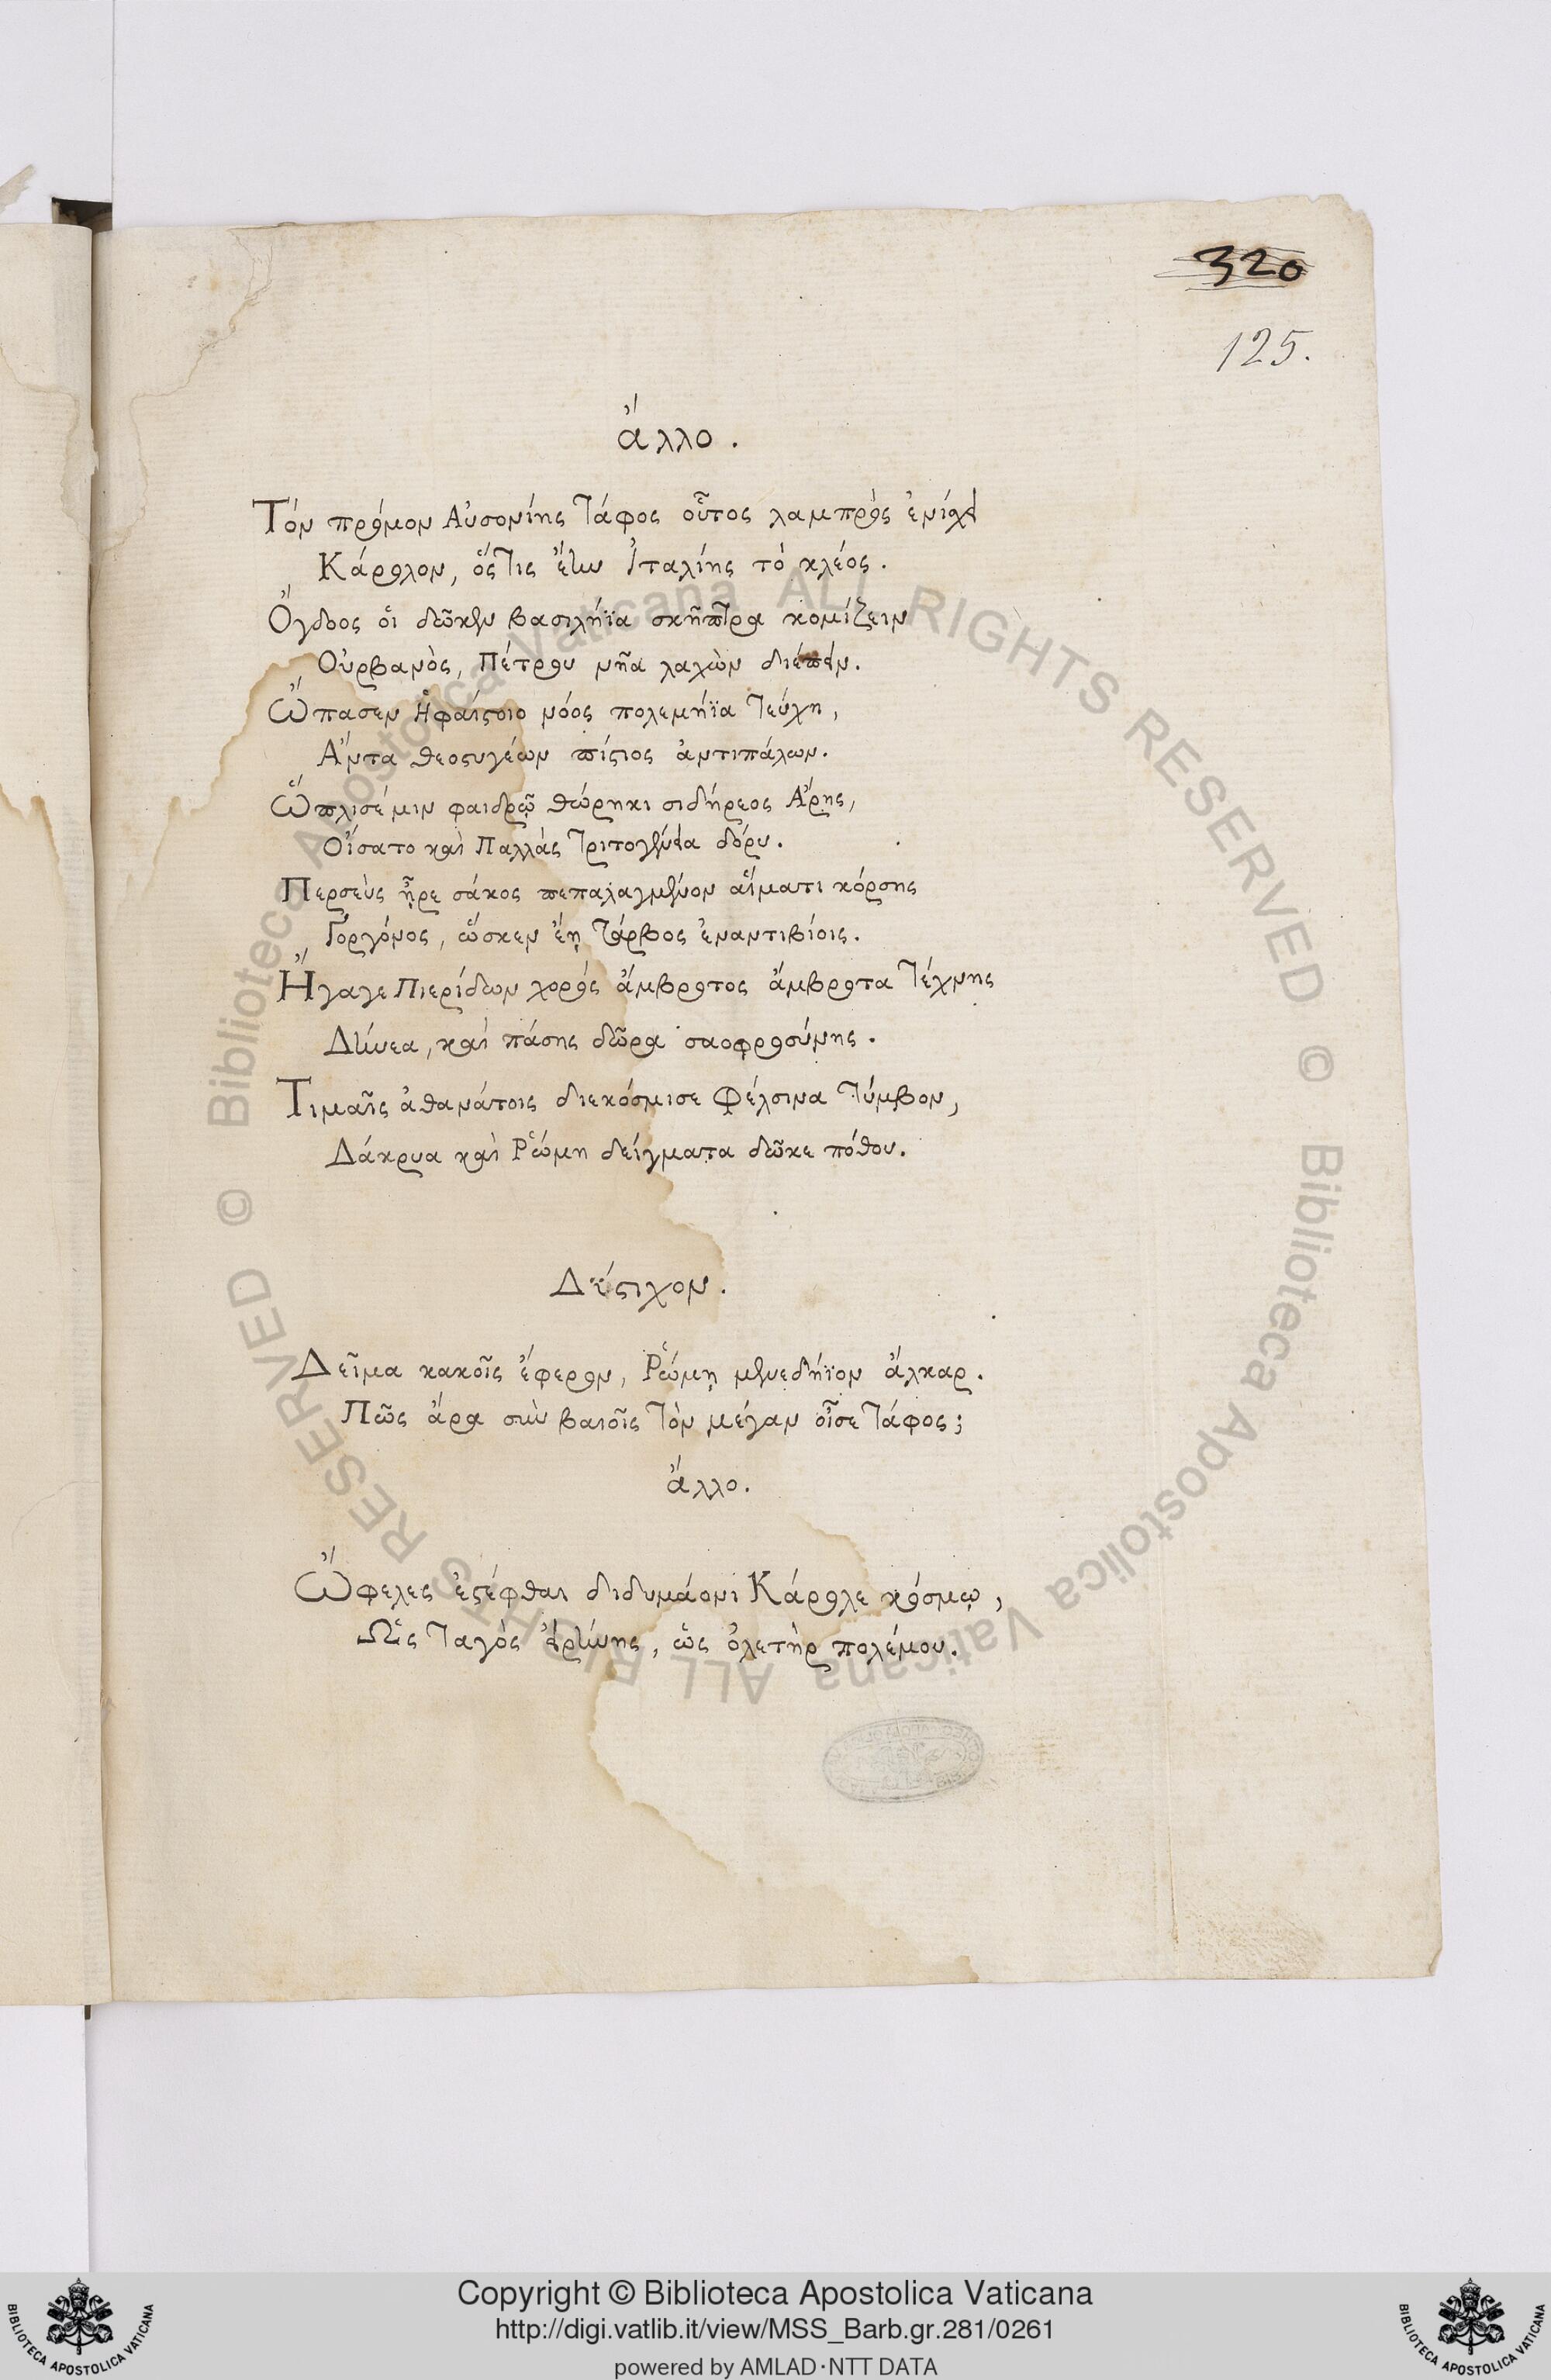 320
125.
ἄλλο.
Τόν πρόμον Αὐσονίης τάφος οὗτος λαμπρὸς ἐνίσχει
Κάρολον, ὅςτις ἔην Ἰταλίης τὸ κλέος.
Ὄγδοος οἱ δῶκεν βασιλήϊα σκῆπτρα κομίζειν
Οὐρβανὸς, Πέτρου νῆα λαχὼν διέπειν.
Ὤπασεν Ἡφαίστοιο νόος πολεμήϊα τεύχη,
Ἄντα θεοστυγέων πίστιος ἀντιπάλων.
Ὥπλισέ μιν φαιδρῷ θώρηκι σιδήρεος Ἄρης,
Οἴσατο καὶ Παλλὰς Τριτογένεια δόρυ.
Περσεὺς ἦρε σάκος πεπαλαγμένον αἵματι κόρσης
Γοργόνος, ὥσκεν ἔῃ τάρβος ἐναντιβίοις.
Ἤγαγε Πιερίδων χορὸς ἄμβροτος ἄμβροτα τέχνης
Δήνεα, καὶ πάσης δῶρα σαοφροσύνης.
Τιμαῖς ἀθανάτοις διεκόσμισε Φέλσινα τύμβον,
Δάκρυα καὶ Ῥώμη δείγματα δῶκε πόθου.
Δίστιχον.
Δεῖμα κακοῖς ἔφερον, Ῥώμῃ μενεδήϊον ἄλκαρ.
Πῶς ἄρα σὺν βαιοῖς τὸν μέγαν οἶσε τάφος;
ἄλλο.
Ὤφελες ἐστέφθαι διδυμάονι Κάρολε κόσμῳ,
Ὡς ταγὸς εἰρήνης, ὡς ὀλετὴρ πολέμου.
© Biblioteca Apostolica Vaticana ALL RIGHTS RESERVED © Biblioteca Apostolica Vaticana ALL RIGHTS RESERVED
Copyright © Biblioteca Apostolica Vaticana
http://digi.vatlib.it/view/MSS_Barb.gr.281/0261
powered by AMLAD·NTT DATA
BIBLIOTECA APOSTOLICA VATICANA
BIBLIOTECA APOSTOLICA VATICANA